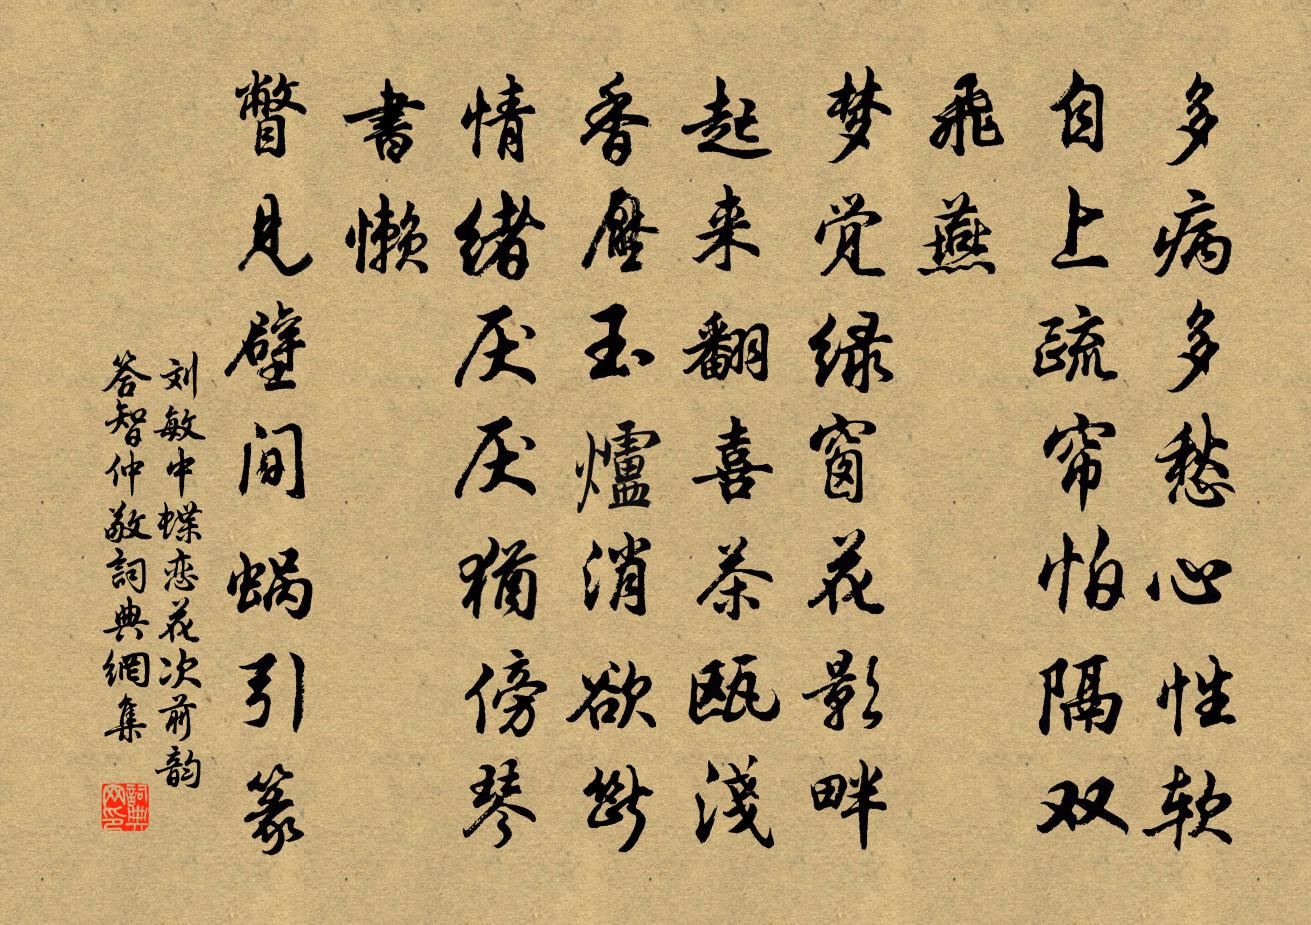 多病多愁心性软
自上疏帘怕隔双
飛燕
梦觉绿窗花影畔
起来翻喜茶瓯淺
香壓玉爐消欲斷
情绪厌厌犹傍琴
書懒
瞥见壁间蜗引篆
刘敏中蝶恋花次前韵
答智仲敬詞典網集
詞典
网印